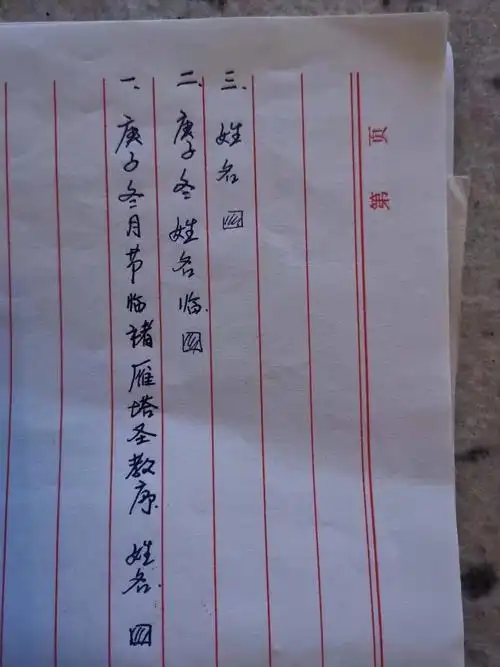 第 页
三、姓名
二、庚子冬姓名临
一、庚子冬月节临褚雁塔圣教序 姓名